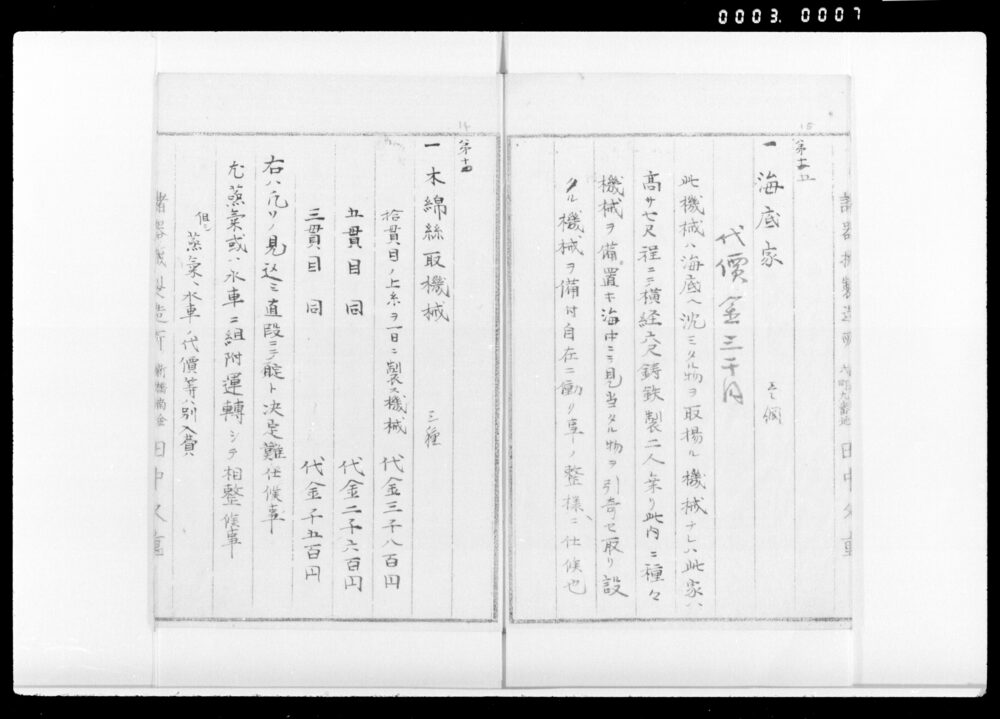 0003. 0007
15
第十五
一 海底家
壱ツ
代價金三千円
此機械ハ海底ヘ沈ミタル物ヲ取揚ル機械ナレハ此家ハ
高サ七尺程ニテ横経六尺鋳鉄製二人乗リ此内ニ種々
機械ヲ備置キ海中ニテ見当タル物ヲ引寄セ取リ設
タル機械ヲ備付自在ニ動ク事ノ整様ニ仕候也
諸器械製造所 田中久重
14
第十四
一 木綿絲取機械 三種
拾貫目ノ上糸ヲ一日ニ製ス機械 代金三千八百円
五貫目 同 代金二千六百円
三貫目 同 代金千五百円
右ハ凡ソノ見込ミ直段ニテ聢ト決定難仕候事
尤蒸氣或ハ水車ニ組附運轉シテ相整候事
但シ蒸氣、水車ノ代價等ハ別入費
諸器械製造所 新橋南金 田中久重